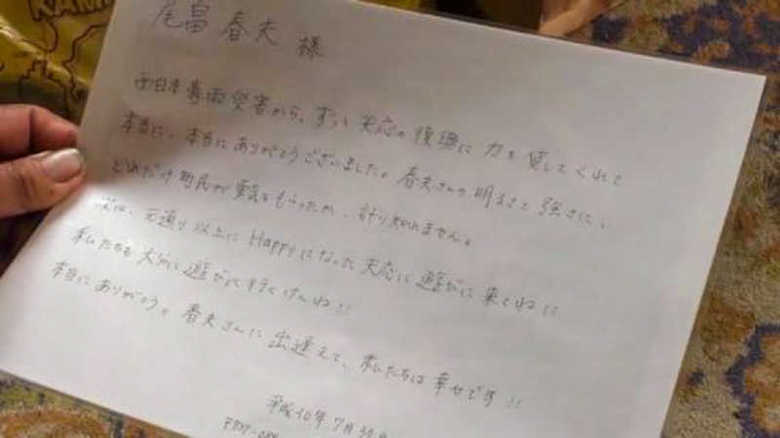 尾畠 春夫 様
西日本豪雨災害から、ずっと天応の復興に力を貸してくれて
本当に、本当にありがとうございました。春夫さんの明るさと強さに、
どれだけ町民が勇気をもらったか、計り知れません。
次は、元通り以上にHappyになった天応に遊びに来てね!!
私たちも大分に遊びに行くけんね!!
本当にありがとう。春夫さんに出逢えて、私たちは幸せです!!
平成30年7月31日